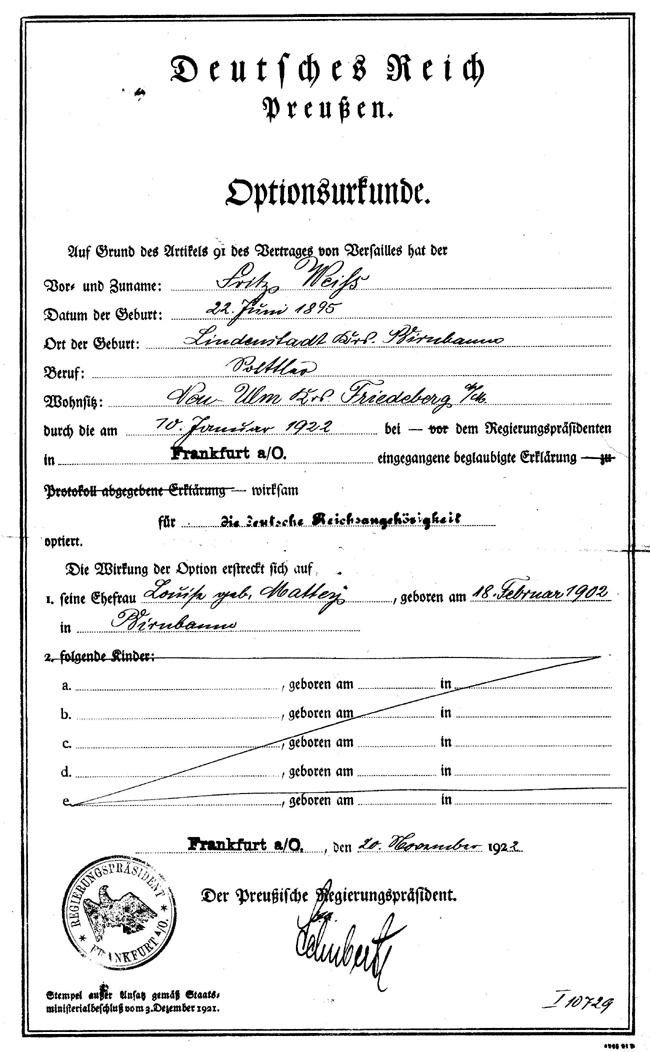 Deutsches Reich
Preußen.
Optionsurkunde.
Auf Grund des Artikels 91 des Vertrages von Versailles hat der
Vor- und Zuname: Fritz Weiss
Datum der Geburt: 22. Juni 1895
Ort der Geburt: Lindenstadt Krs. Birnbaum
Beruf:
Wohnsitz: Neu Ulm Krs Friedeberg
durch die am 10. Januar 1922 bei — vor dem Regierungspräsidenten
in Frankfurt a/O. eingegangene beglaubigte Erklärung — zu
Protokoll abgegebene Erklärung — wirksam
für die deutsche Reichsangehörigkeit
optiert.
Die Wirkung der Option erstreckt sich auf
1. seine Ehefrau Louise geb. , geboren am 18. Februar 1902
in Birnbaum
2. folgende Kinder:
a. , geboren am in
b. , geboren am in
c. , geboren am in
d. , geboren am in
e. , geboren am in
Frankfurt a/O. , den 20. November 1922
Der Preußische Regierungspräsident.
REGIERUNGSPRÄSIDENT
FRANKFURT A/O.
Stempel außer Ansatz gemäß Staats-
ministerialbeschluß vom 3. Dezember 1921.
I 10729